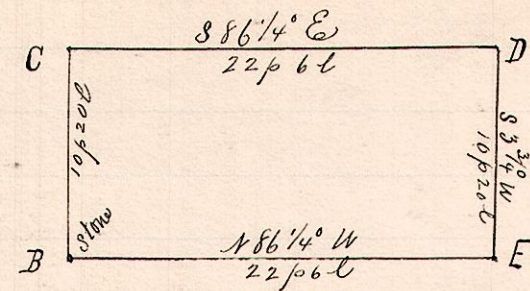 S 86 1/4° E
C D
22 p 6 l
10 p 20 l
S 3 3/4° W
10 p 20 l
Stone
N 86 1/4° W
B E
22 p 6 l